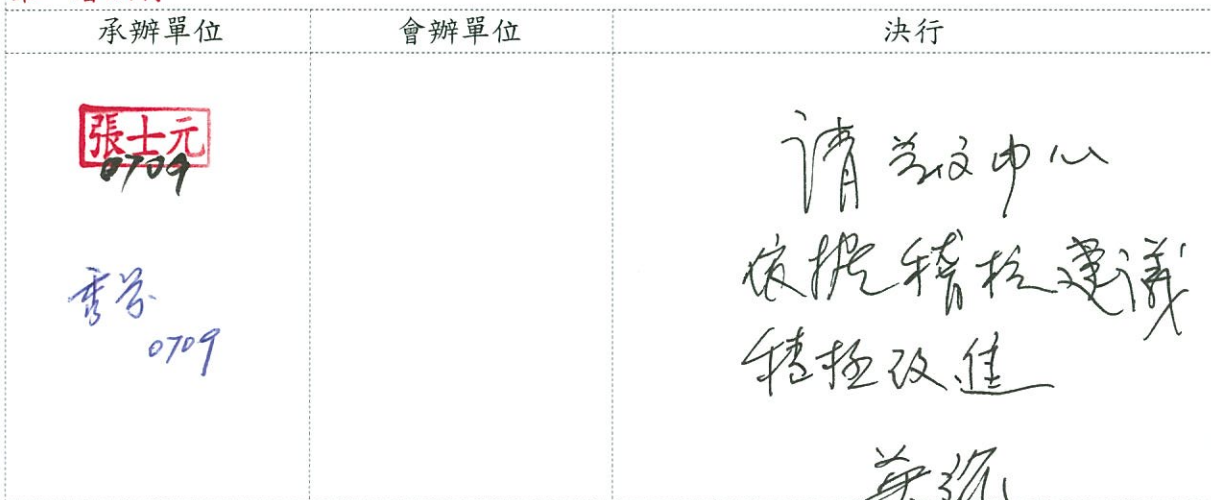 承辦單位 會辦單位 決行
張士元
0709
秀芬
0709
請藝文中心
依據稽核建議
積極改進